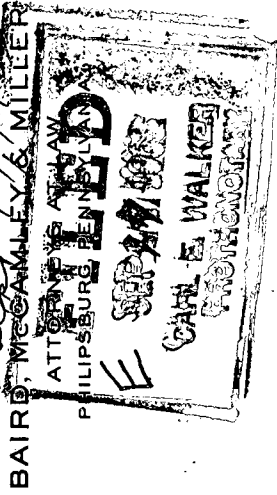 BAIRD, McCAMLEY & MILLER
ATTORNEYS AT LAW
PHILIPSBURG, PENNSYLVANIA
FILED
SEP
CARL E. WALKER
PROTHONOTARY